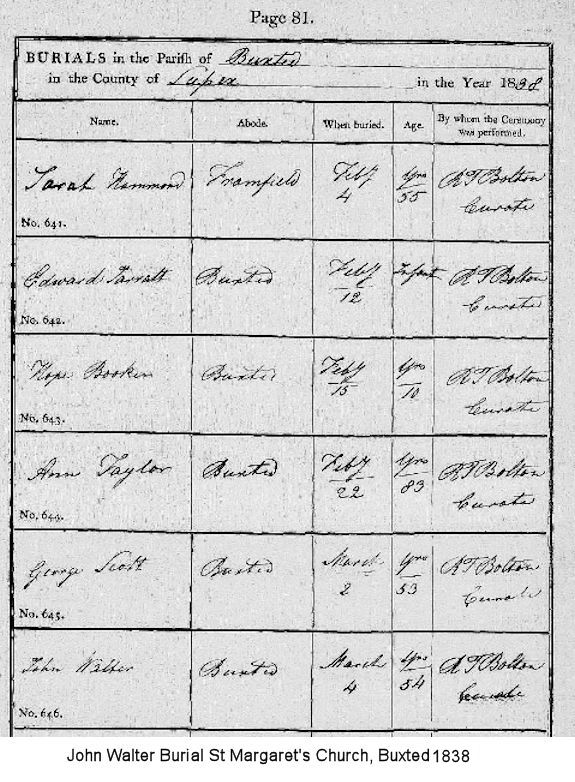 Page 81.
BURIALS in the Parish of Buxted
in the County of Sussex in the Year 1838
Name. Abode. When buried. Age. By whom the Ceremony was performed.
Sarah Hammond Framfield Feby 4 Yrs 55 R T Bolton Curate
No. 641.
Edward Tarratt Buxted Feby 12 Infant R T Bolton Curate
No. 642.
Hope Booker Buxted Feby 15 Yrs 10 R T Bolton Curate
No. 643.
Ann Taylor Buxted Feby 22 Yrs 83 R T Bolton Curate
No. 644.
George Scott Buxted March 2 Yrs 53 R T Bolton Curate
No. 645.
John Walter Buxted March 4 Yrs 54 R T Bolton Curate
No. 646.
John Walter Burial St Margaret's Church, Buxted 1838